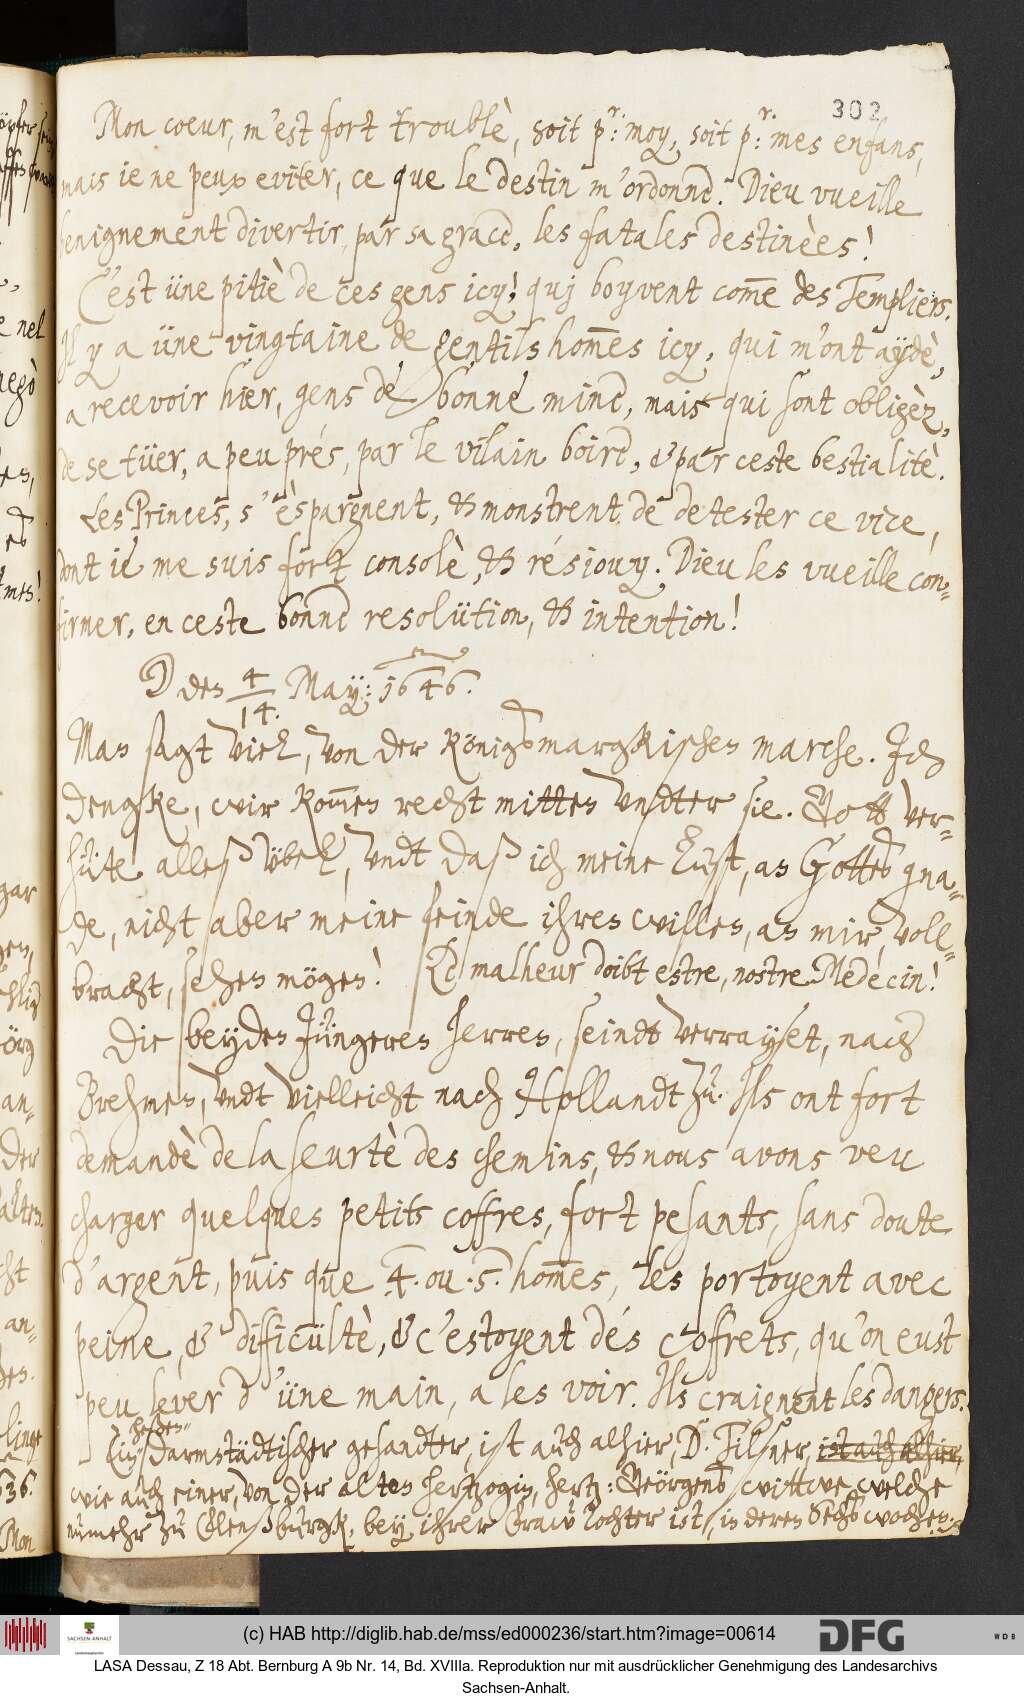 302
Mon coeur, m'est fort troublè, soit pr: moy, soit pr: mes enfans,
mais ie ne peux eviter, ce que le destin m'ordonne. Dieu vueille
benignement divertir, par sa grace, les fatales destinèes!
C'est üne pitiè de ces gens icy! quj boyvent com̄e des Templiers.
Il y a üne vingtaine de gentilshom̄es icy, qui m'ont aydè,
a recevoir hier, gens de bonne mine, mais qui sont obligèz,
de se tüer, a peu prés, par le vilain boire, & par ceste bestialitè.
Les Princes, s'èspargnent, & monstrent de detester ce vice,
dont ie me suis fort consolè, & résiouy. Dieu les vueille con-
firmer, en ceste bonne resolütion, & intention!
D den 4/14. May: 1646.
Man sagt viel, von der Königsmargkischen marche. Ich
dengke, wir kom̄en recht mitten vndter sie. Gott ver-
hüte alles vbel, vndt daß ich meine lust, an Gottes gna-
de, nicht aber meine feinde ihren willen, an mir, voll-
bracht, sehen mögen! Le malheur doibt estre, nostre Médecin!
Die beyden Jüngeren herren, seindt verrayset, nach
Brehmen, vndt vielleicht nach Hollandt zu. Ils ont fort
demandè de la seurtè des chemins, & nous avons veu
charger quelques petits coffres, fort pesants, sans doute
d'argent, puis que 4. ou 5. hom̄es, les portoyent avec
peine, & dificültè, & c'estoyent des coffrets, qu'on eust
peu lever d'üne main, a les voir. Ils craignent les dangers.
heßen-
Ein darmstädtischer gesandter, ist auch alhier, D. Filsner, ist auch alhier,
wie auch einer, von der alten hertzogin, hertz: Geörgens wittwe, welche
nunmehr zu Flenßburgk, bey ihrer Fraw Tochter ist, in deren Sechswochen.
(c) HAB http://diglib.hab.de/mss/ed000236/start.htm?image=00614
DFG
WDB
SACHSEN-ANHALT
LASA Dessau, Z 18 Abt. Bernburg A 9b Nr. 14, Bd. XVIIIa. Reproduktion nur mit ausdrücklicher Genehmigung des Landesarchivs
Sachsen-Anhalt.